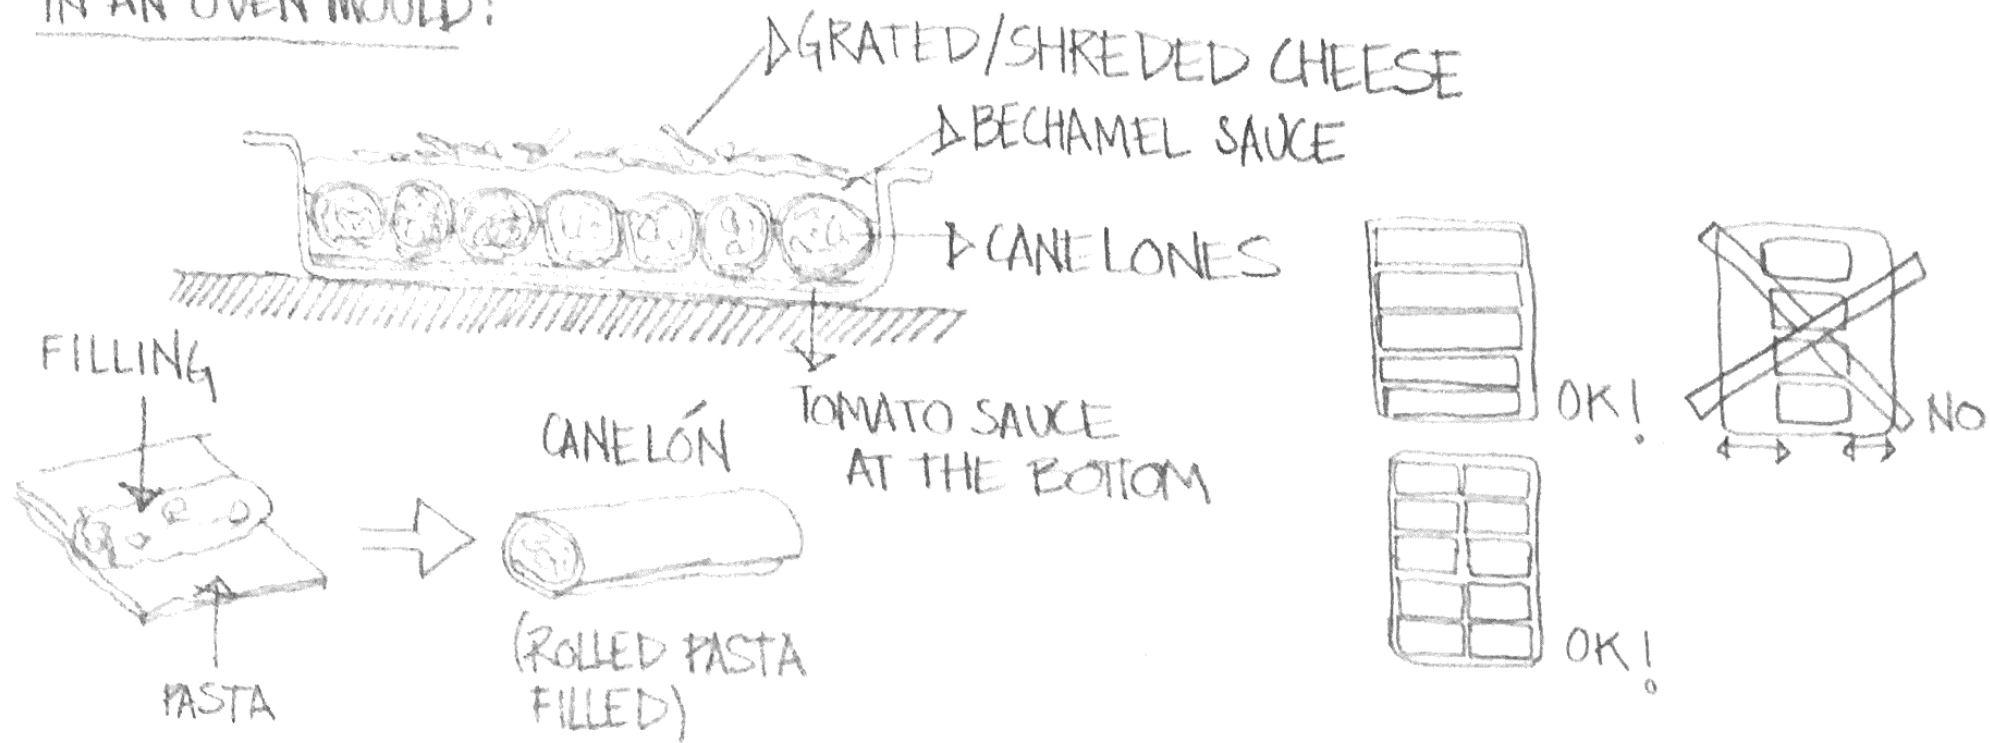 IN AN OVEN MOULD:
GRATED/SHREDED CHEESE
BECHAMEL SAUCE
CANELONES
TOMATO SAUCE
AT THE BOTTOM
FILLING
PASTA
CANELÓN
(ROLLED PASTA
FILLED)
OK!
NO
OK!